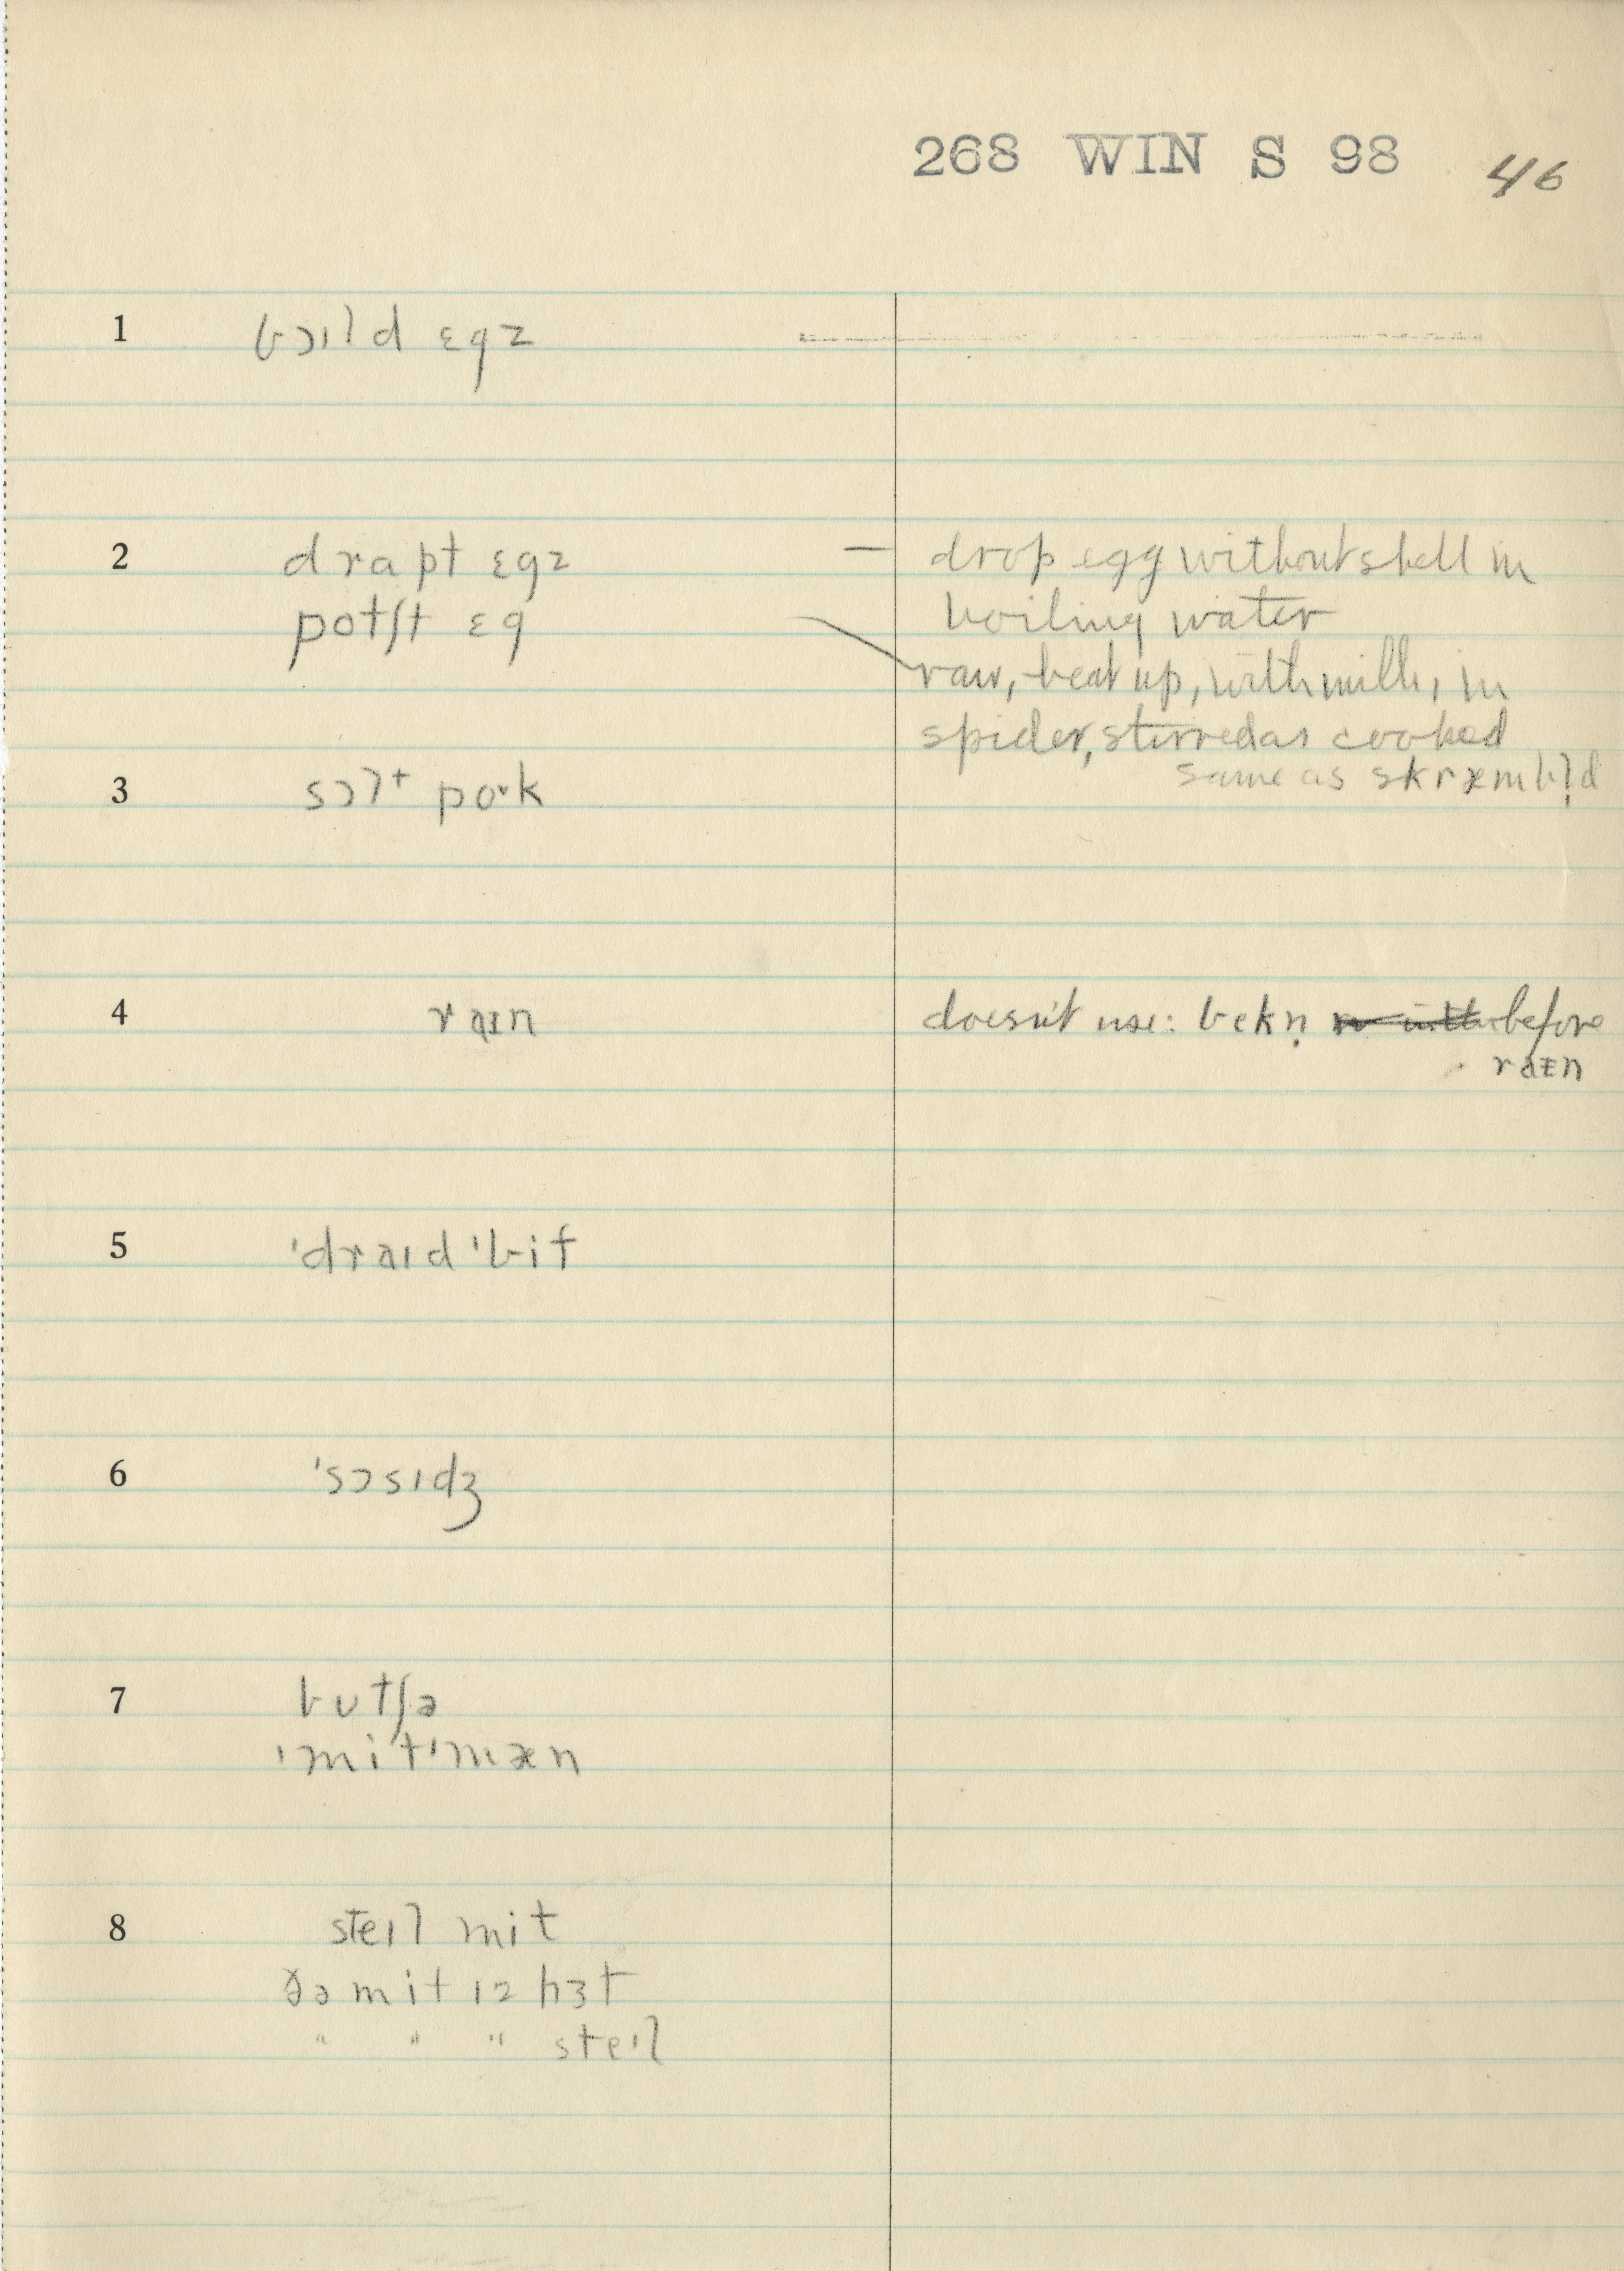 268 WIN S 98 46
1 bɔɪld ɛgz
2 drapt ɛgz — drop egg without shell in
potʃt ɛg boiling water
raw, beat up, with milk, in
spider, stirred as cooked
same as skræmbl̩d
3 sɔlt pork
4 raɪn doesn't use: bekn̩ before
raɪn
5 ˈdraɪd ˈbif
6 ˈsɔsɪdʒ
7 bʊtʃə
ˈmitˈmæn
8 steɪl mit
ðə mit ɪz hɜt
" " " steɪl